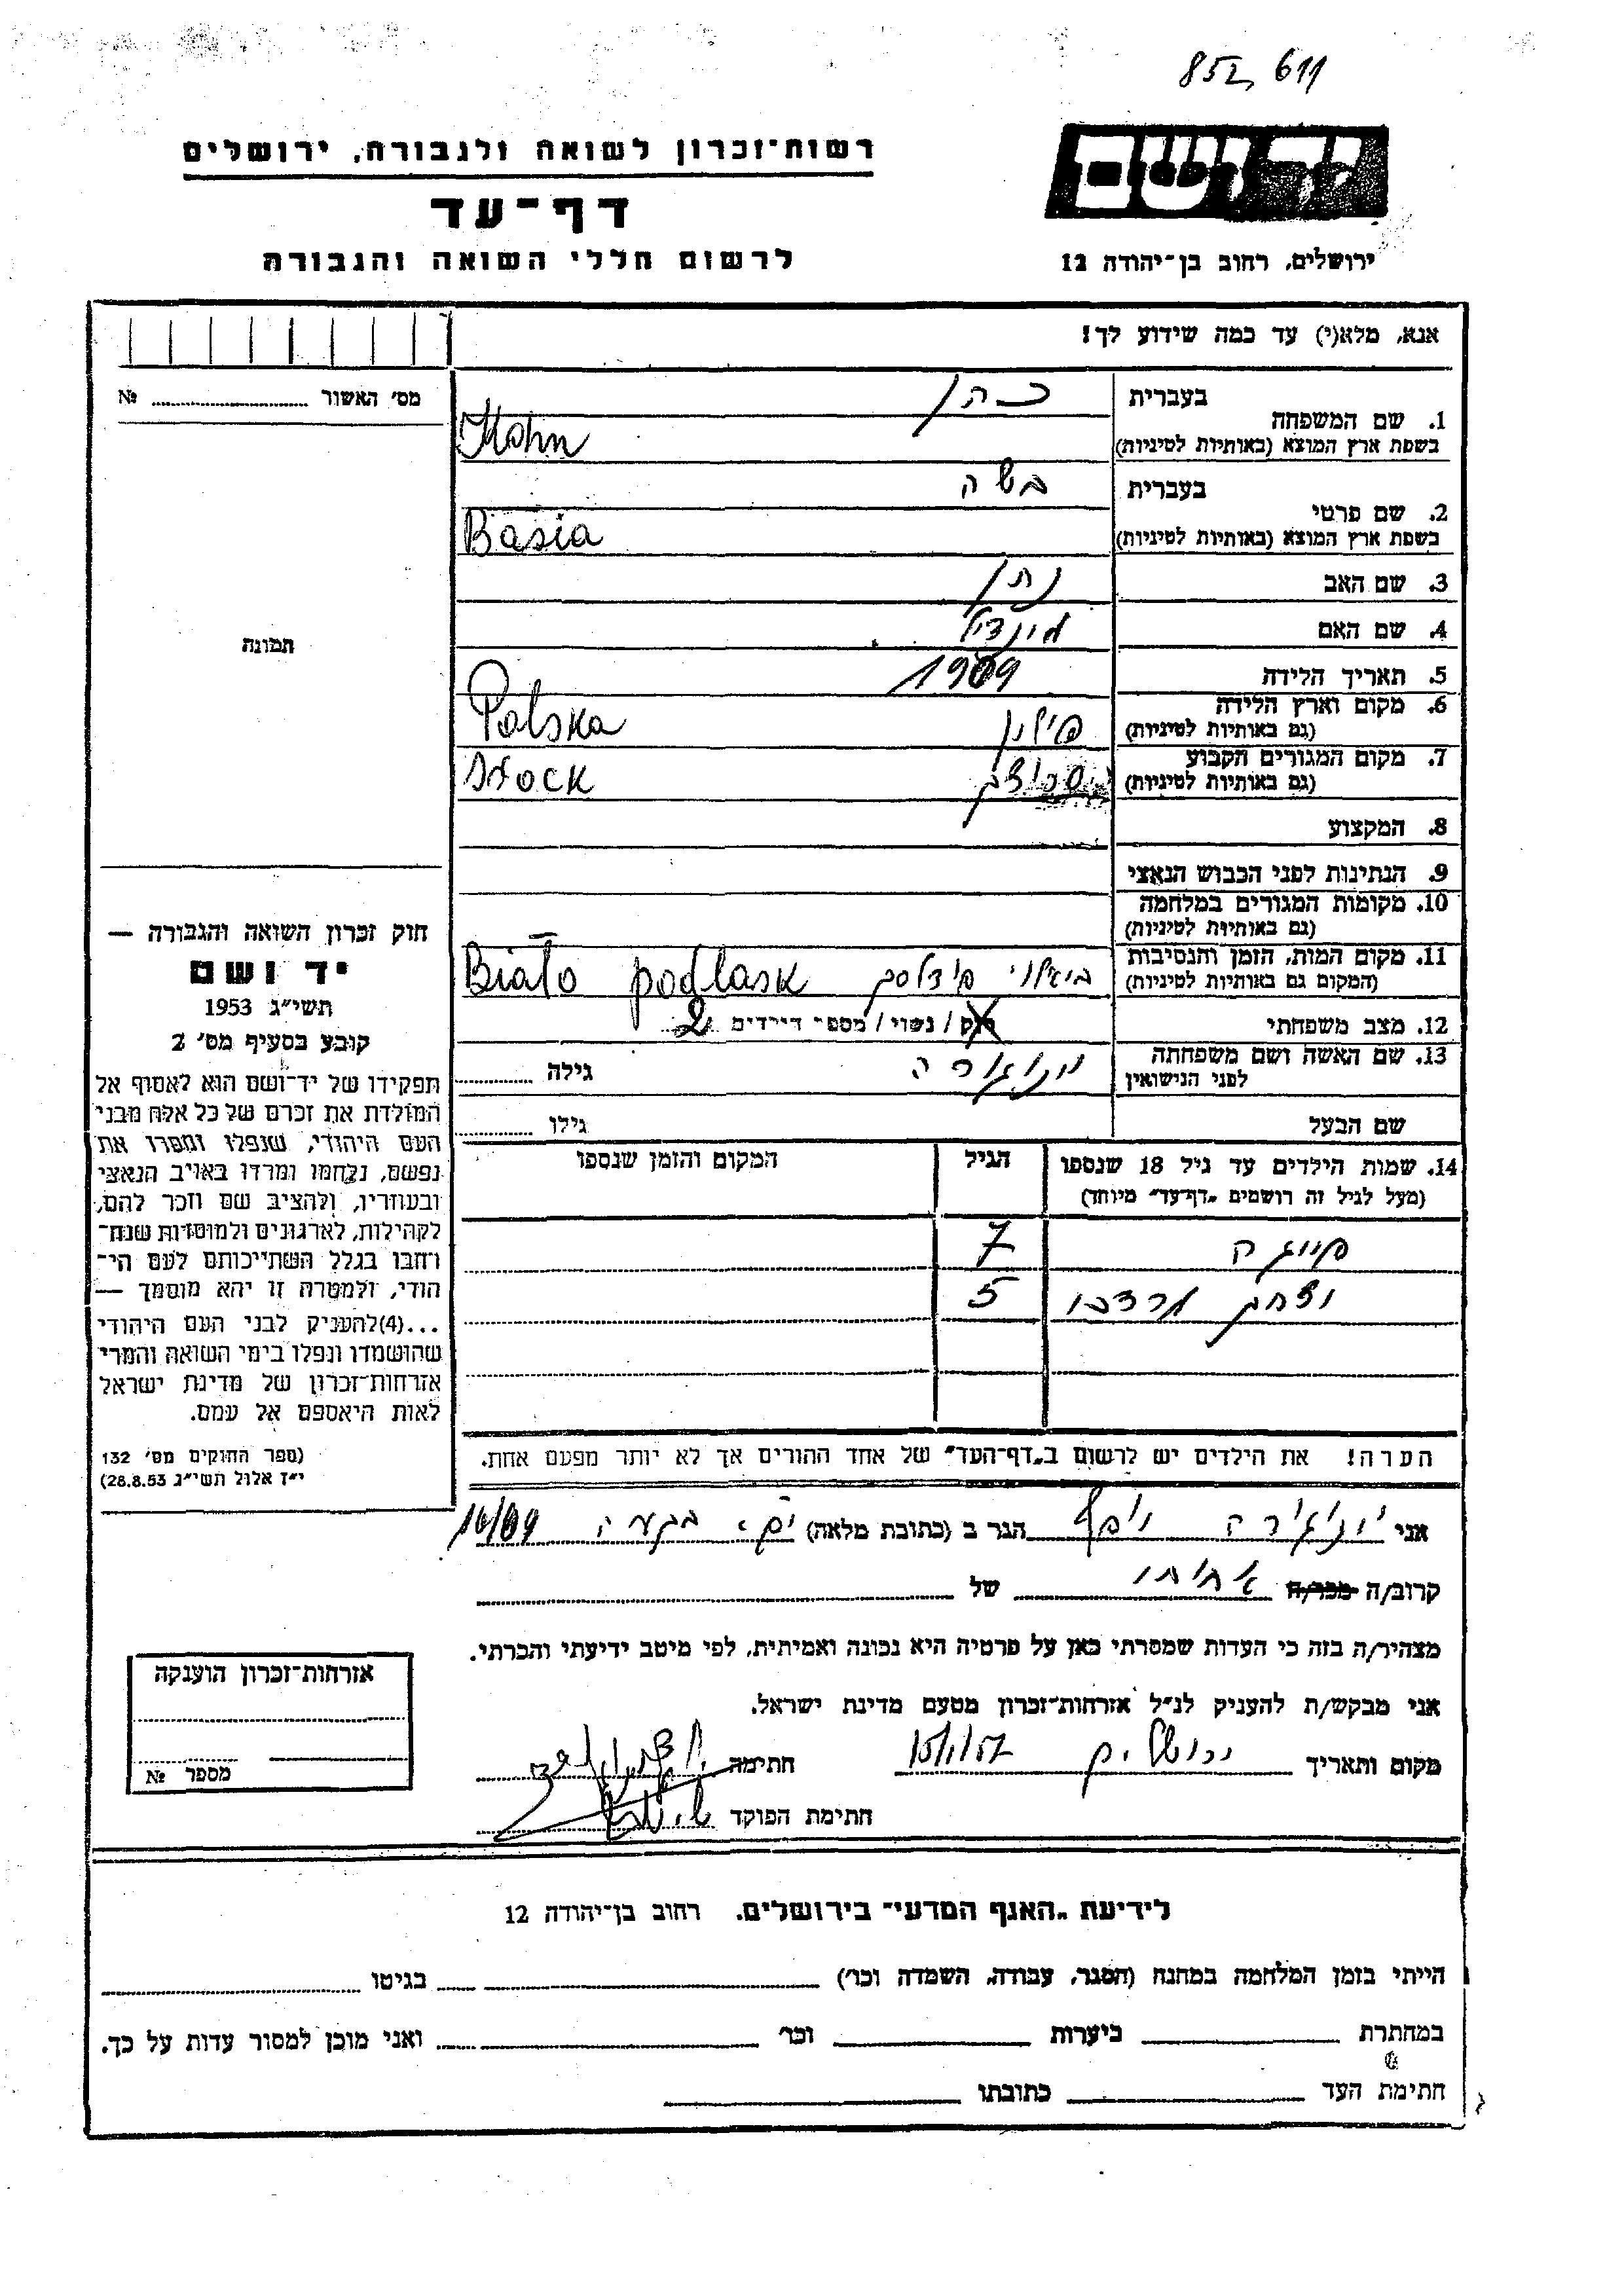 852,611
רשות־זכרון לשואה ולגבורה, ירושלים
דף־עד
לרשום חללי השואה והגבורה
יד ושם
ירושלים, רחוב בן־יהודה 12
אנא, מלא(י) עד כמה שידוע לך!
מס׳ האשור № 
1. שם המשפחה
בעברית כהן
בשפת ארץ המוצא (באותיות לטיניות) Kohn
2. שם פרטי
בעברית בשה
בשפת ארץ המוצא (באותיות לטיניות) Basia
3. שם האב נתן
4. שם האם
5. תאריך הלידה 1909
6. מקום וארץ הלידה
(גם באותיות לטיניות) פילון Polska
7. מקום המגורים הקבוע
(גם באותיות לטיניות)
8. המקצוע
9. הנתינות לפני הכבוש הנאצי
10. מקומות המגורים במלחמה
(גם באותיות לטיניות)
11. מקום המות, הזמן והנסיבות
(המקום גם באותיות לטיניות) Biało podlask
12. מצב משפחתי רוק / נשוי / מספר הילדים 2
13. שם האשה ושם משפחתה
לפני הנישואין גילה
שם הבעל גילו
14. שמות הילדים עד גיל 18 שנספו הגיל המקום והזמן שנספו
(מעל לגיל זה רושמים „דף־עד״ מיוחד)
7
5
הערה! את הילדים יש לרשום ב„דף־העד״ של אחד ההורים אך לא יותר מפעם אחת.
תמונה
חוק זכרון השואה והגבורה —
יד ושם
תשי״ג 1953
קובע בסעיף מס׳ 2
תפקידו של יד־ושם הוא לאסוף אל
המולדת את זכרם של כל אלה מבני
העם היהודי, שנפלו ומסרו את
נפשם, נלחמו ומרדו באויב הנאצי
ובעוזריו, ולהציב שם וזכר להם,
לקהילות, לארגונים ולמוסדות שנח־
רחבו בגלל השתייכותם לעם הי־
הודי, ולמטרה זו יהא מוסמך —
...(4)להעניק לבני העם היהודי
שהושמדו ונפלו בימי השואה והמרי
אזרחות־זכרון של מדינת ישראל
לאות היאספם אל עמם.
(ספר החוקים מס׳ 132
י״ז אלול תשי״ג 28.8.53)
אני יוסף הגר ב (כתובת מלאה)
קרוב/ה מכר/ה אחותו של
מצהיר/ה בזה כי העדות שמסרתי כאן על פרטיה היא נכונה ואמיתית, לפי מיטב ידיעתי והכרתי.
אני מבקש/ת להעניק לנ״ל אזרחות־זכרון מטעם מדינת ישראל.
מקום ותאריך ירושלים 15/1/57 חתימה
חתימת הפוקד
אזרחות־זכרון הוענקה
מספר №
לידיעת „האגף המדעי״ בירושלים, רחוב בן־יהודה 12
הייתי בזמן המלחמה במחנה (הסגר, עבודה, השמדה וכו׳) בגיטו
במחתרת ביערות וכו׳ ואני מוכן למסור עדות על כך.
חתימת העד כתובתו